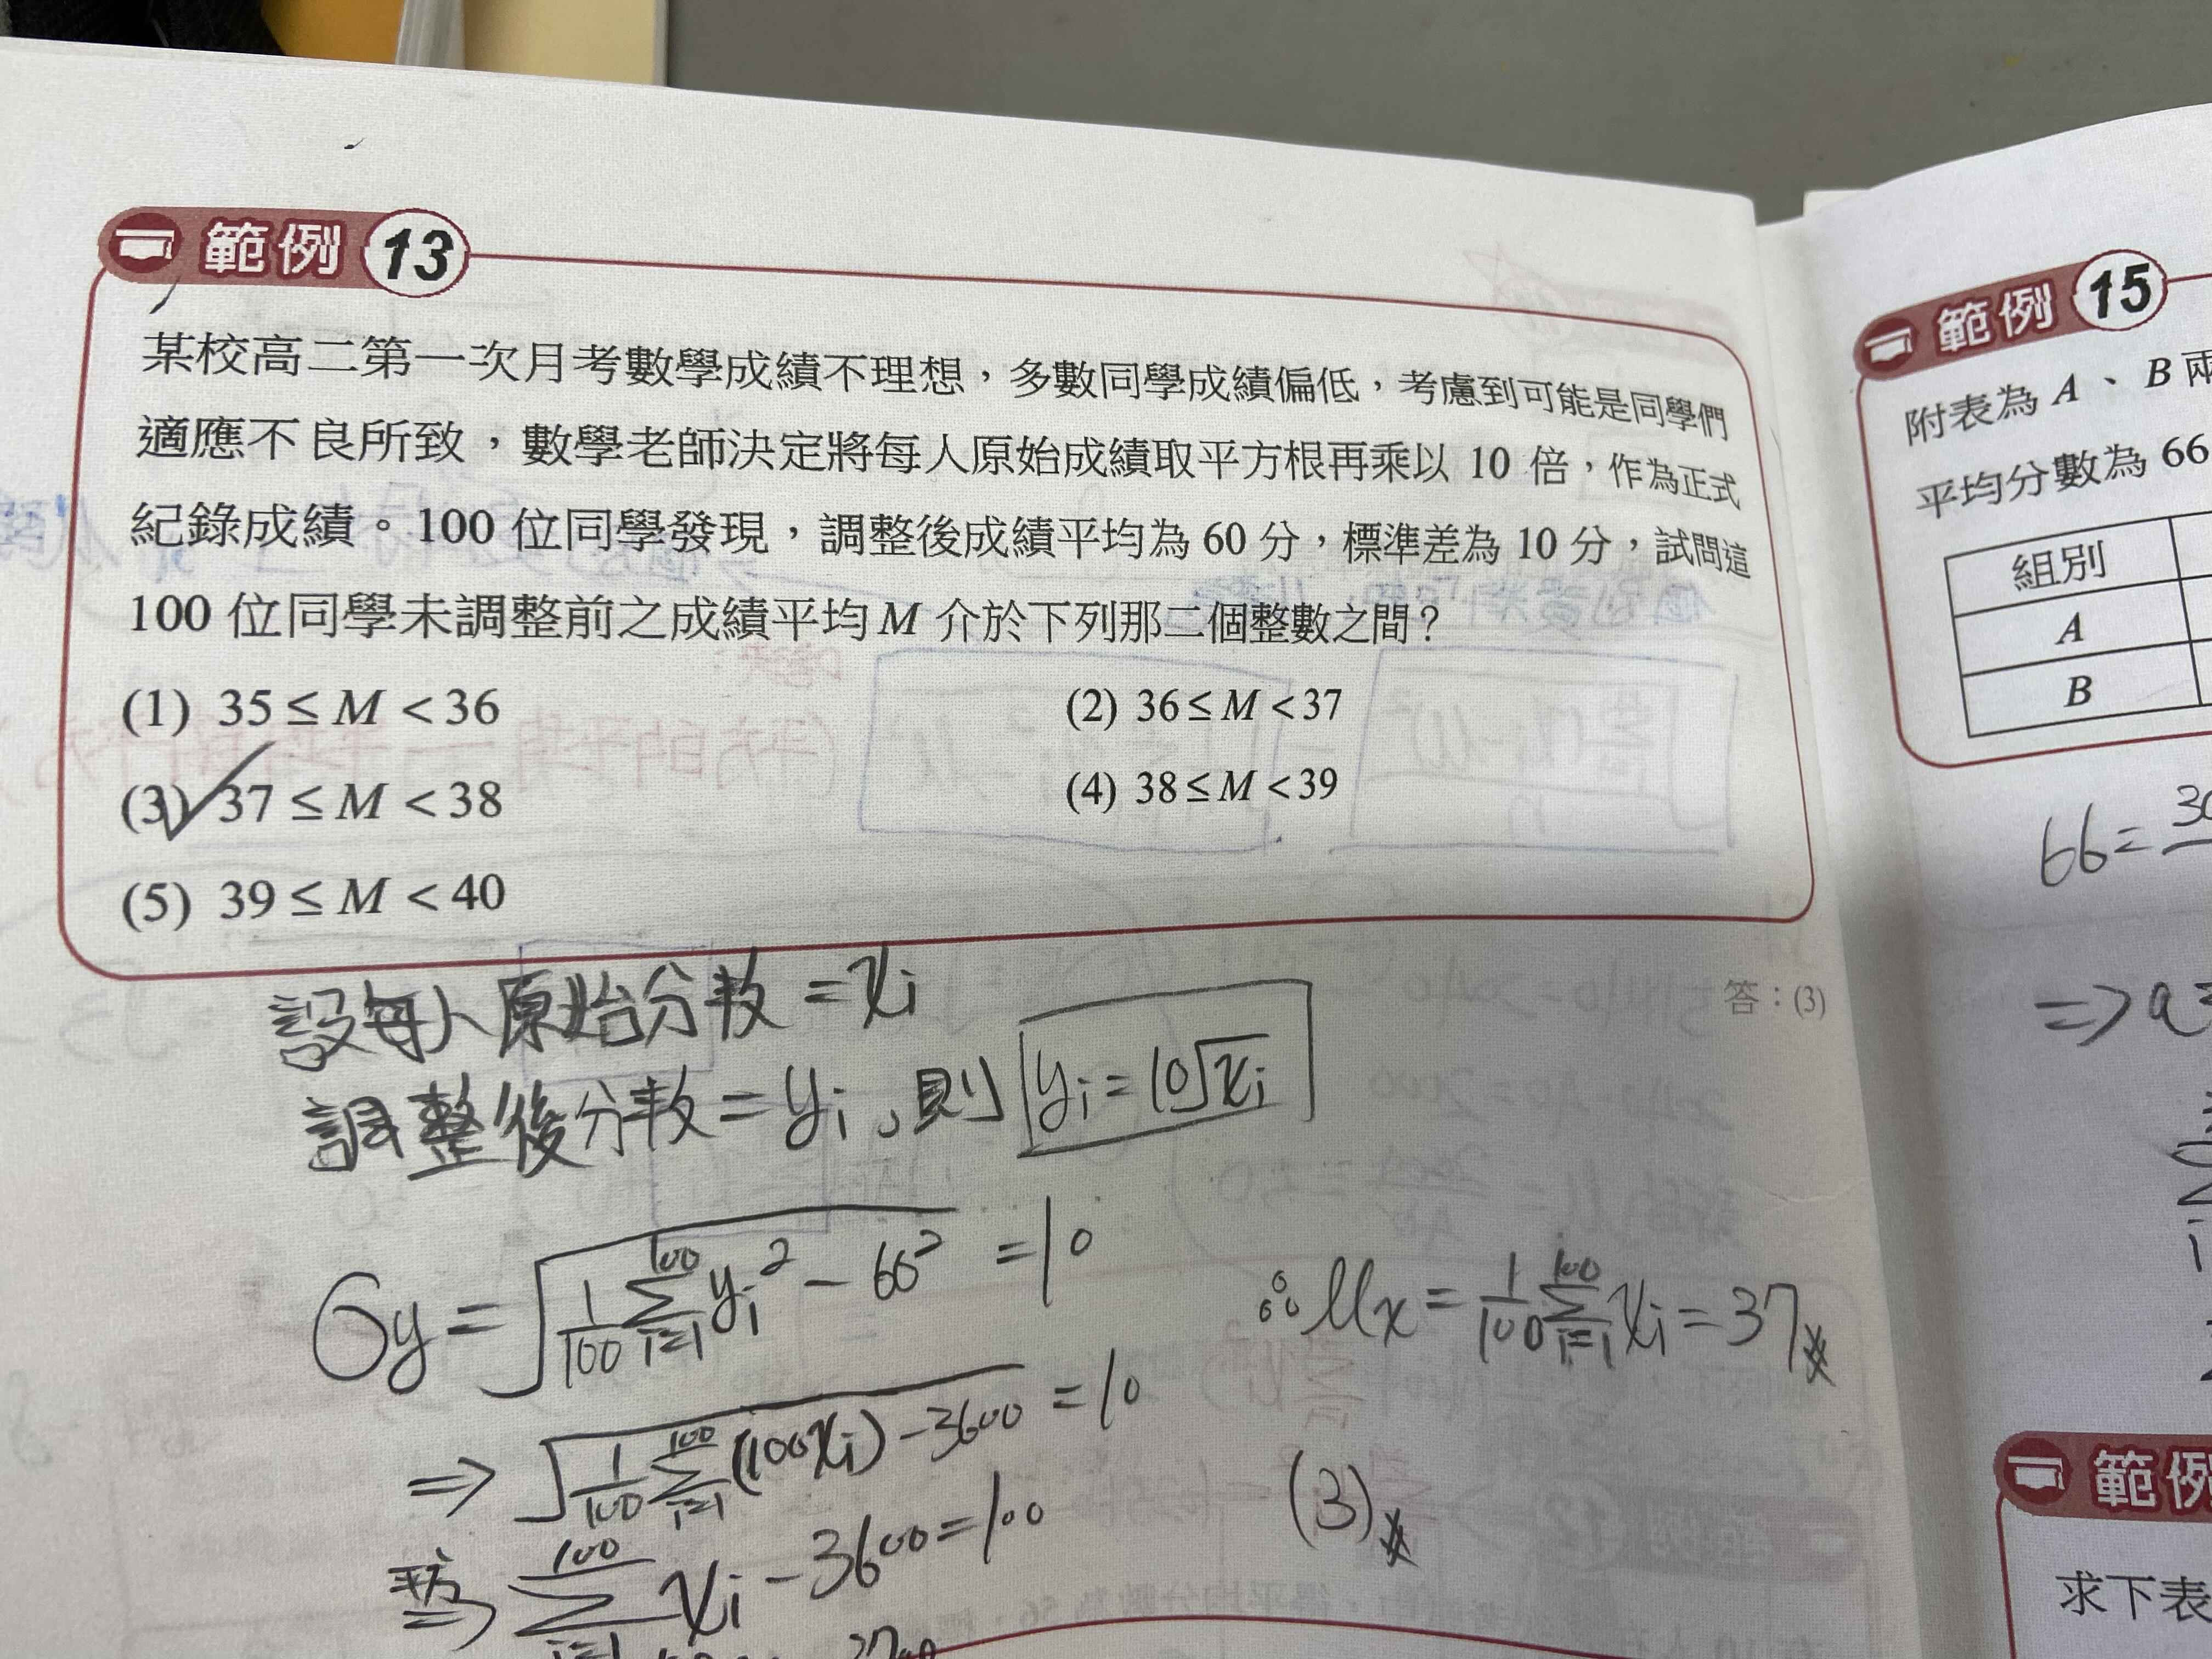 範例 13
某校高二第一次月考數學成績不理想，多數同學成績偏低，考慮到可能是同學們
適應不良所致，數學老師決定將每人原始成績取平方根再乘以 10 倍，作為正式
紀錄成績。100 位同學發現，調整後成績平均為 60 分，標準差為 10 分，試問這
100 位同學未調整前之成績平均 M 介於下列那二個整數之間？
(1) 35 ≤ M < 36
(2) 36 ≤ M < 37
(3) 37 ≤ M < 38
(4) 38 ≤ M < 39
(5) 39 ≤ M < 40
答：(3)
設每人原始分數 = xi
調整後分數 = yi，則 yi = 10√xi
σy = √(1/100 Σ(i=1→100) yi² − 60²) = 10
⇒ √(1/100 Σ(i=1→100) (100xi) − 3600) = 10
平方⇒ Σ(i=1→100) xi − 3600 = 100
∴ μx = 1/100 Σ(i=1→100) xi = 37
(3)
範例 15
附表為 A 、 B 兩
平均分數為 66
組別
A
B
66 =
⇒ a
範例
求下表